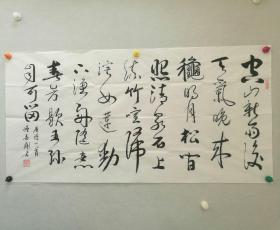 空山新雨後
天氣晚来
穐明月松間
照清泉石上
流竹喧歸
浣女蓮動
下漁舟随意
春芳歇王孫
自可留
唐詩一首